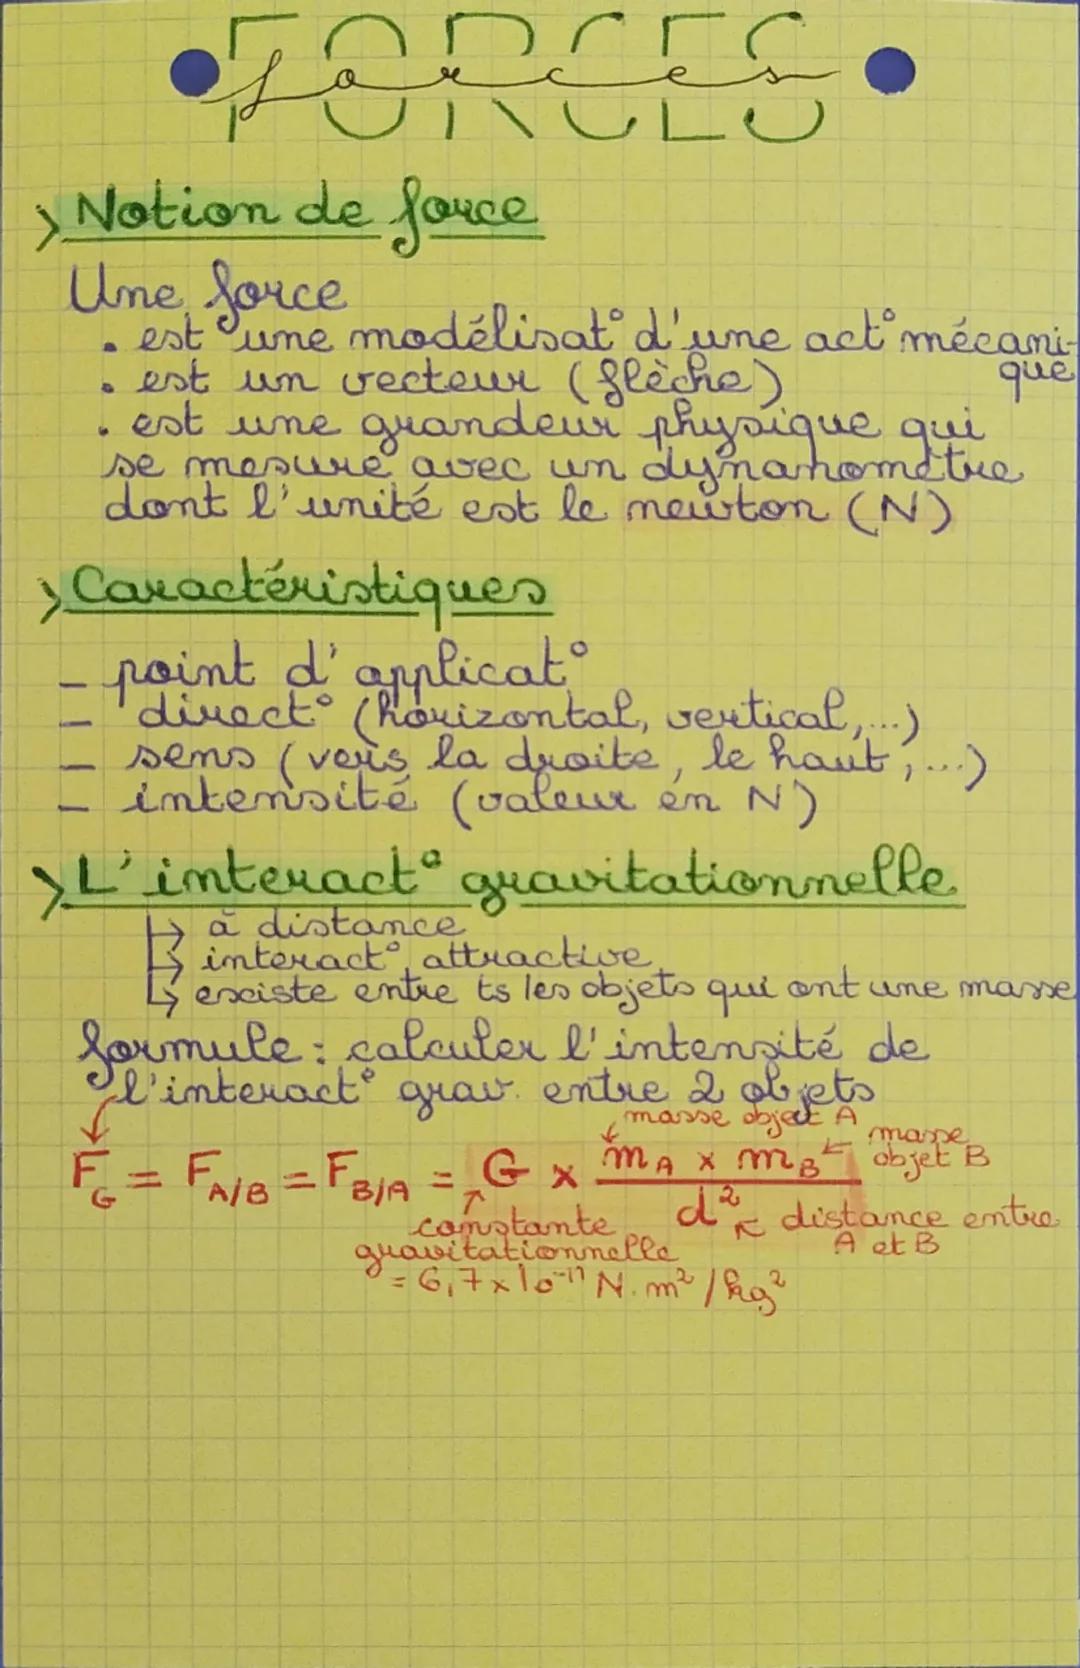 FORCES
forces
> Notion de force
Une force
. est une modélisat° d'une act° mécani-
que
. est un vecteur (flèche)
. est une grandeur physique qui
se mesure avec un dynanomètre
dont l'unité est le newton (N)
> Caractéristiques
- point d'applicat°
- direct° (horizontal, vertical,...)
- sens (vers la droite, le haut,...)
- intensité (valeur en N)
> L'interact° gravitationnelle
↳ à distance
↳ interact° attractive
↳ existe entre ts les objets qui ont une masse
formule : calculer l'intensité de
l'interact° grav. entre 2 objets
masse objet A
masse
objet B
F_G = F_A/B = F_B/A = G x (m_A x m_B) / d²
constante
gravitationnelle
= 6,7 x 10⁻¹¹ N.m² / kg²
distance entre
A et B